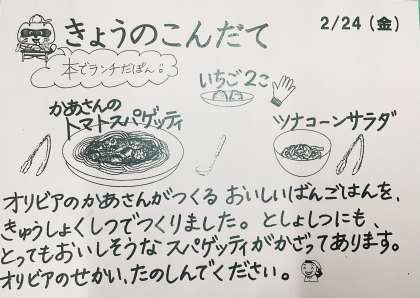 きょうのこんだて
2/24(金)
本でランチだぽん。
いちご2こ
かあさんの
トマトスパゲッティ
ツナコーンサラダ
オリビアのかあさんがつくる おいしいばんごはんを、
きゅうしょくしつでつくりました。としょしつにも、
とってもおいしそうな スパゲッティがかざってあります。
オリビアのせかい、たのしんでください。